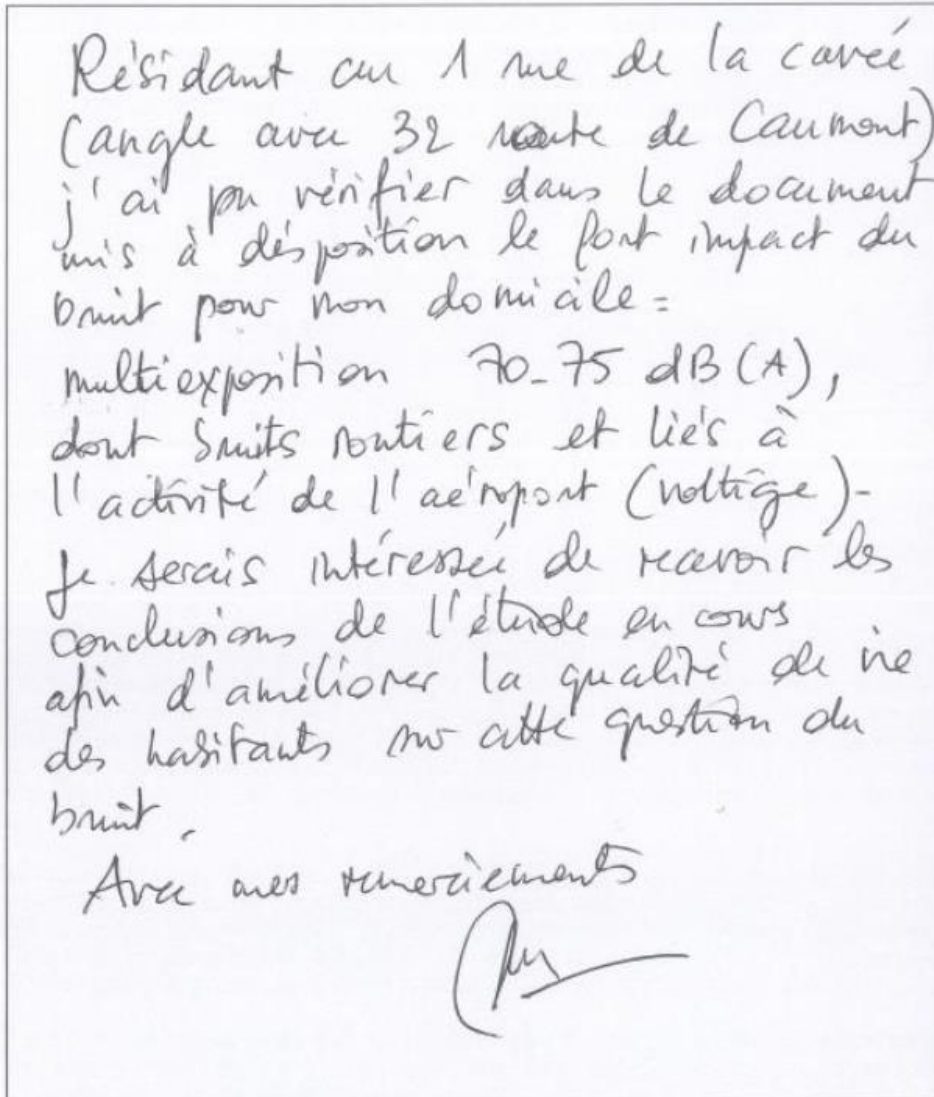 Résidant au 1 rue de la cavée
(angle avec 32 route de Caumont)
j'ai pu vérifier dans le document
mis à disposition le fort impact du
bruit pour mon domicile :
multiexposition 70-75 dB (A),
dont bruits routiers et liés à
l'activité de l'aéroport (voltige) -
Je serais intéressée de recevoir les
conclusions de l'étude en cours
afin d'améliorer la qualité de vie
des habitants sur cette question du
bruit.
Avec mes remerciements